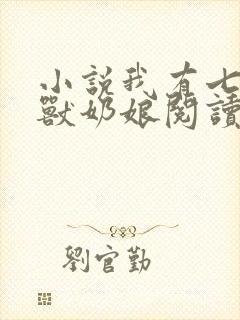 小說我有七
獸奶娘閱讀
劉官勤